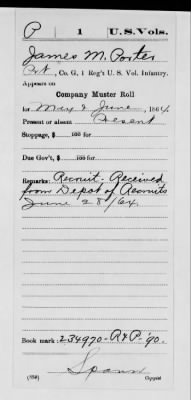 P 1 U.S.Vols.
James M. Porter
Pvt, Co. G, 1 Reg't U. S. Vol. Infantry.
Appears on
Company Muster Roll
for May & June, 1864.
Present or absent Present
Stoppage, $ 100 for
Due Gov't, $ 100 for
Remarks: Recruit - Received
from Depot of Recruits
June 28/64.
Book mark: 234970-R&P-'90.
Spann
(358) Copyist